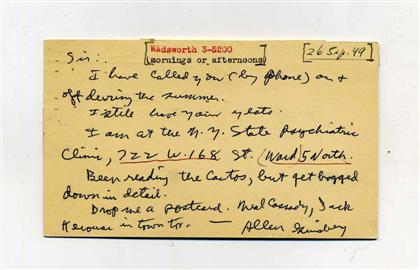 Wadsworth 3-5200
[mornings or afternoons]
[26 Sep. 49]
Sir:
I have called you (by phone) on &
off during the summer.
I still have your
I am at the N.Y. State Psychiatric
Clinic, 722 W. 168 St. (Ward 5 North.
Been reading the Cantos, but get bogged
down in detail.
Drop me a postcard. Neal Cassady, Jack
Kerouac in town too. — Allen Ginsberg